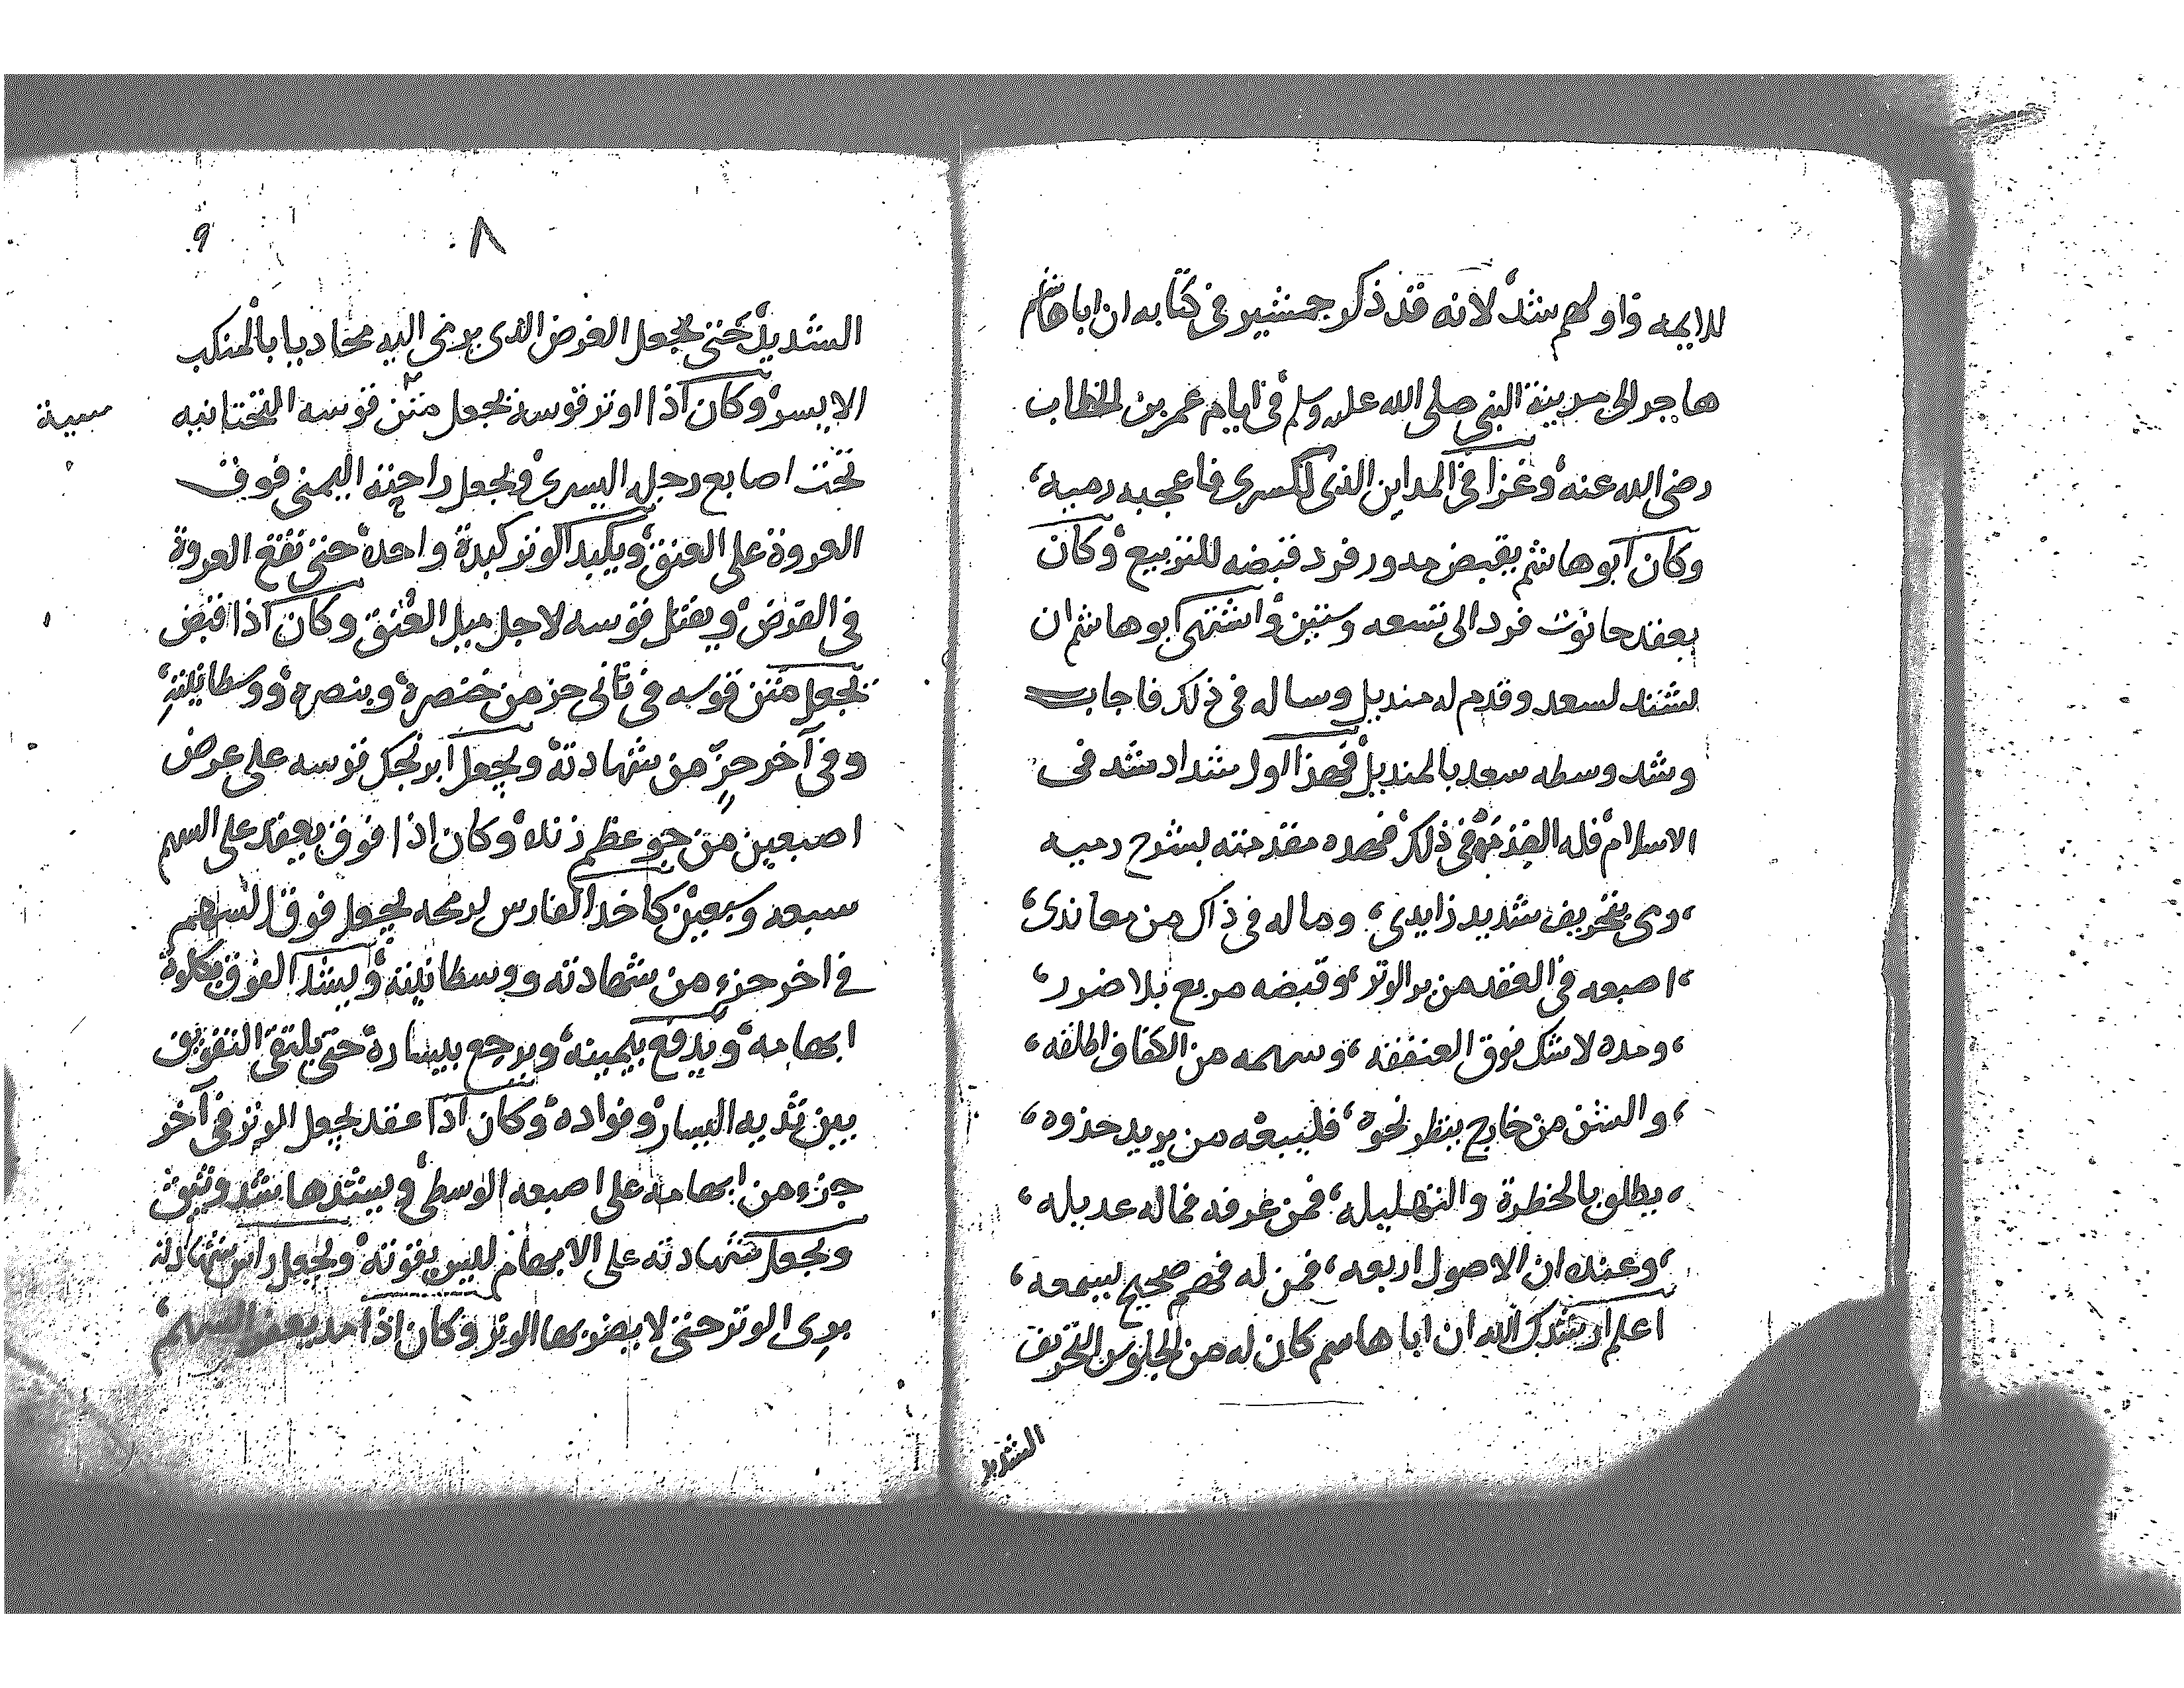 للايمه واولهم شد لانه قد ذكر جمشير في كتابه ان ابا هاشم
هاجر الى مدينة النبي صلى الله عليه وسلم في ايام عمر بن الخطاب
رضى الله عنه وغزا في المداين الذى لكسرى فاعجبه رميه،
وكان ابو هاشم يقبض مدور فرد قبضه للتربيع وكان
يعقد حانوت فرد الى تسعه وستين واشتهى ابو هاشم ان
لشد لسعد وقدم له منديل وساله في ذلك فاجاب
وشد وسطه سعد بالمنديل فهذا اول شداد شد في
الاسلام فله القدمة في ذلك فهده مقدمته بشرح رميه
، ومى بتحريف شديد زايدى، وماله في ذاك من معاندى،
، اصبعه في العقد من بر الوتر، وقبضه مربع بلا ضرر،
، ومده لاشك فوق العنفقه، وسهمه من الكفاف اطلقه،
، والستن من خارج ينظر نحوه، فليبعه من يريد حذوه،
، يطلق بالخطرة والتهليله، فمن عرفه فماله عديله،
، وعنده ان الاصول اربعه، فمن له فهم صحيح يسمعه،
اعلم ارشدك الله ان ابا هاسم كان له من الجلوس التحريف
الشديد
٨
9
الشديد حتى يجعل الغرض الذى يرمى اليه محاديا بالمنكب
الايسر وكان اذا اوتر قوسه يجعل متن قوسه التحتانيه
سية
تحت اصابع رجله اليسرى ويجعل راحته اليمنى فوق
العروة على العنق ويكبد الوتر كبدة واحده حتى تقع العروة
في القرض ويفتل قوسه لاجل ميل العنق وكان اذا قبض
يجعل متن قوسه في تانى حز من خنصره وبنصره ووسطانيته
وفي آخر حز من شهادته ويجعل ابرنجك قوسه على عرض
اصبعين من جو عظم زنده وكان اذا فوق يعقد على السهم
سبعه وسبعين كاخد الفارس لرمحه يجعل فوق السهم
في اخر جزء من شهادته ووسطانيته ويشد الفوق بكلوة
ابهامه ويدفع بيمينه ويرجع بيساره حتى يلتقى التفويق
بين ثديه اليسار وفواده وكان اذا عقد يجعل الوتر في آخر
جزء من ابهامه على اصبعه الوسطى ويشدها شد وثيق
ويجعل شهادته على الابهام للين يفوته ويجعل راس شهادته
برى الوتر حتى لا يضر بها الوتر وكان اذا مد يعمر السهم